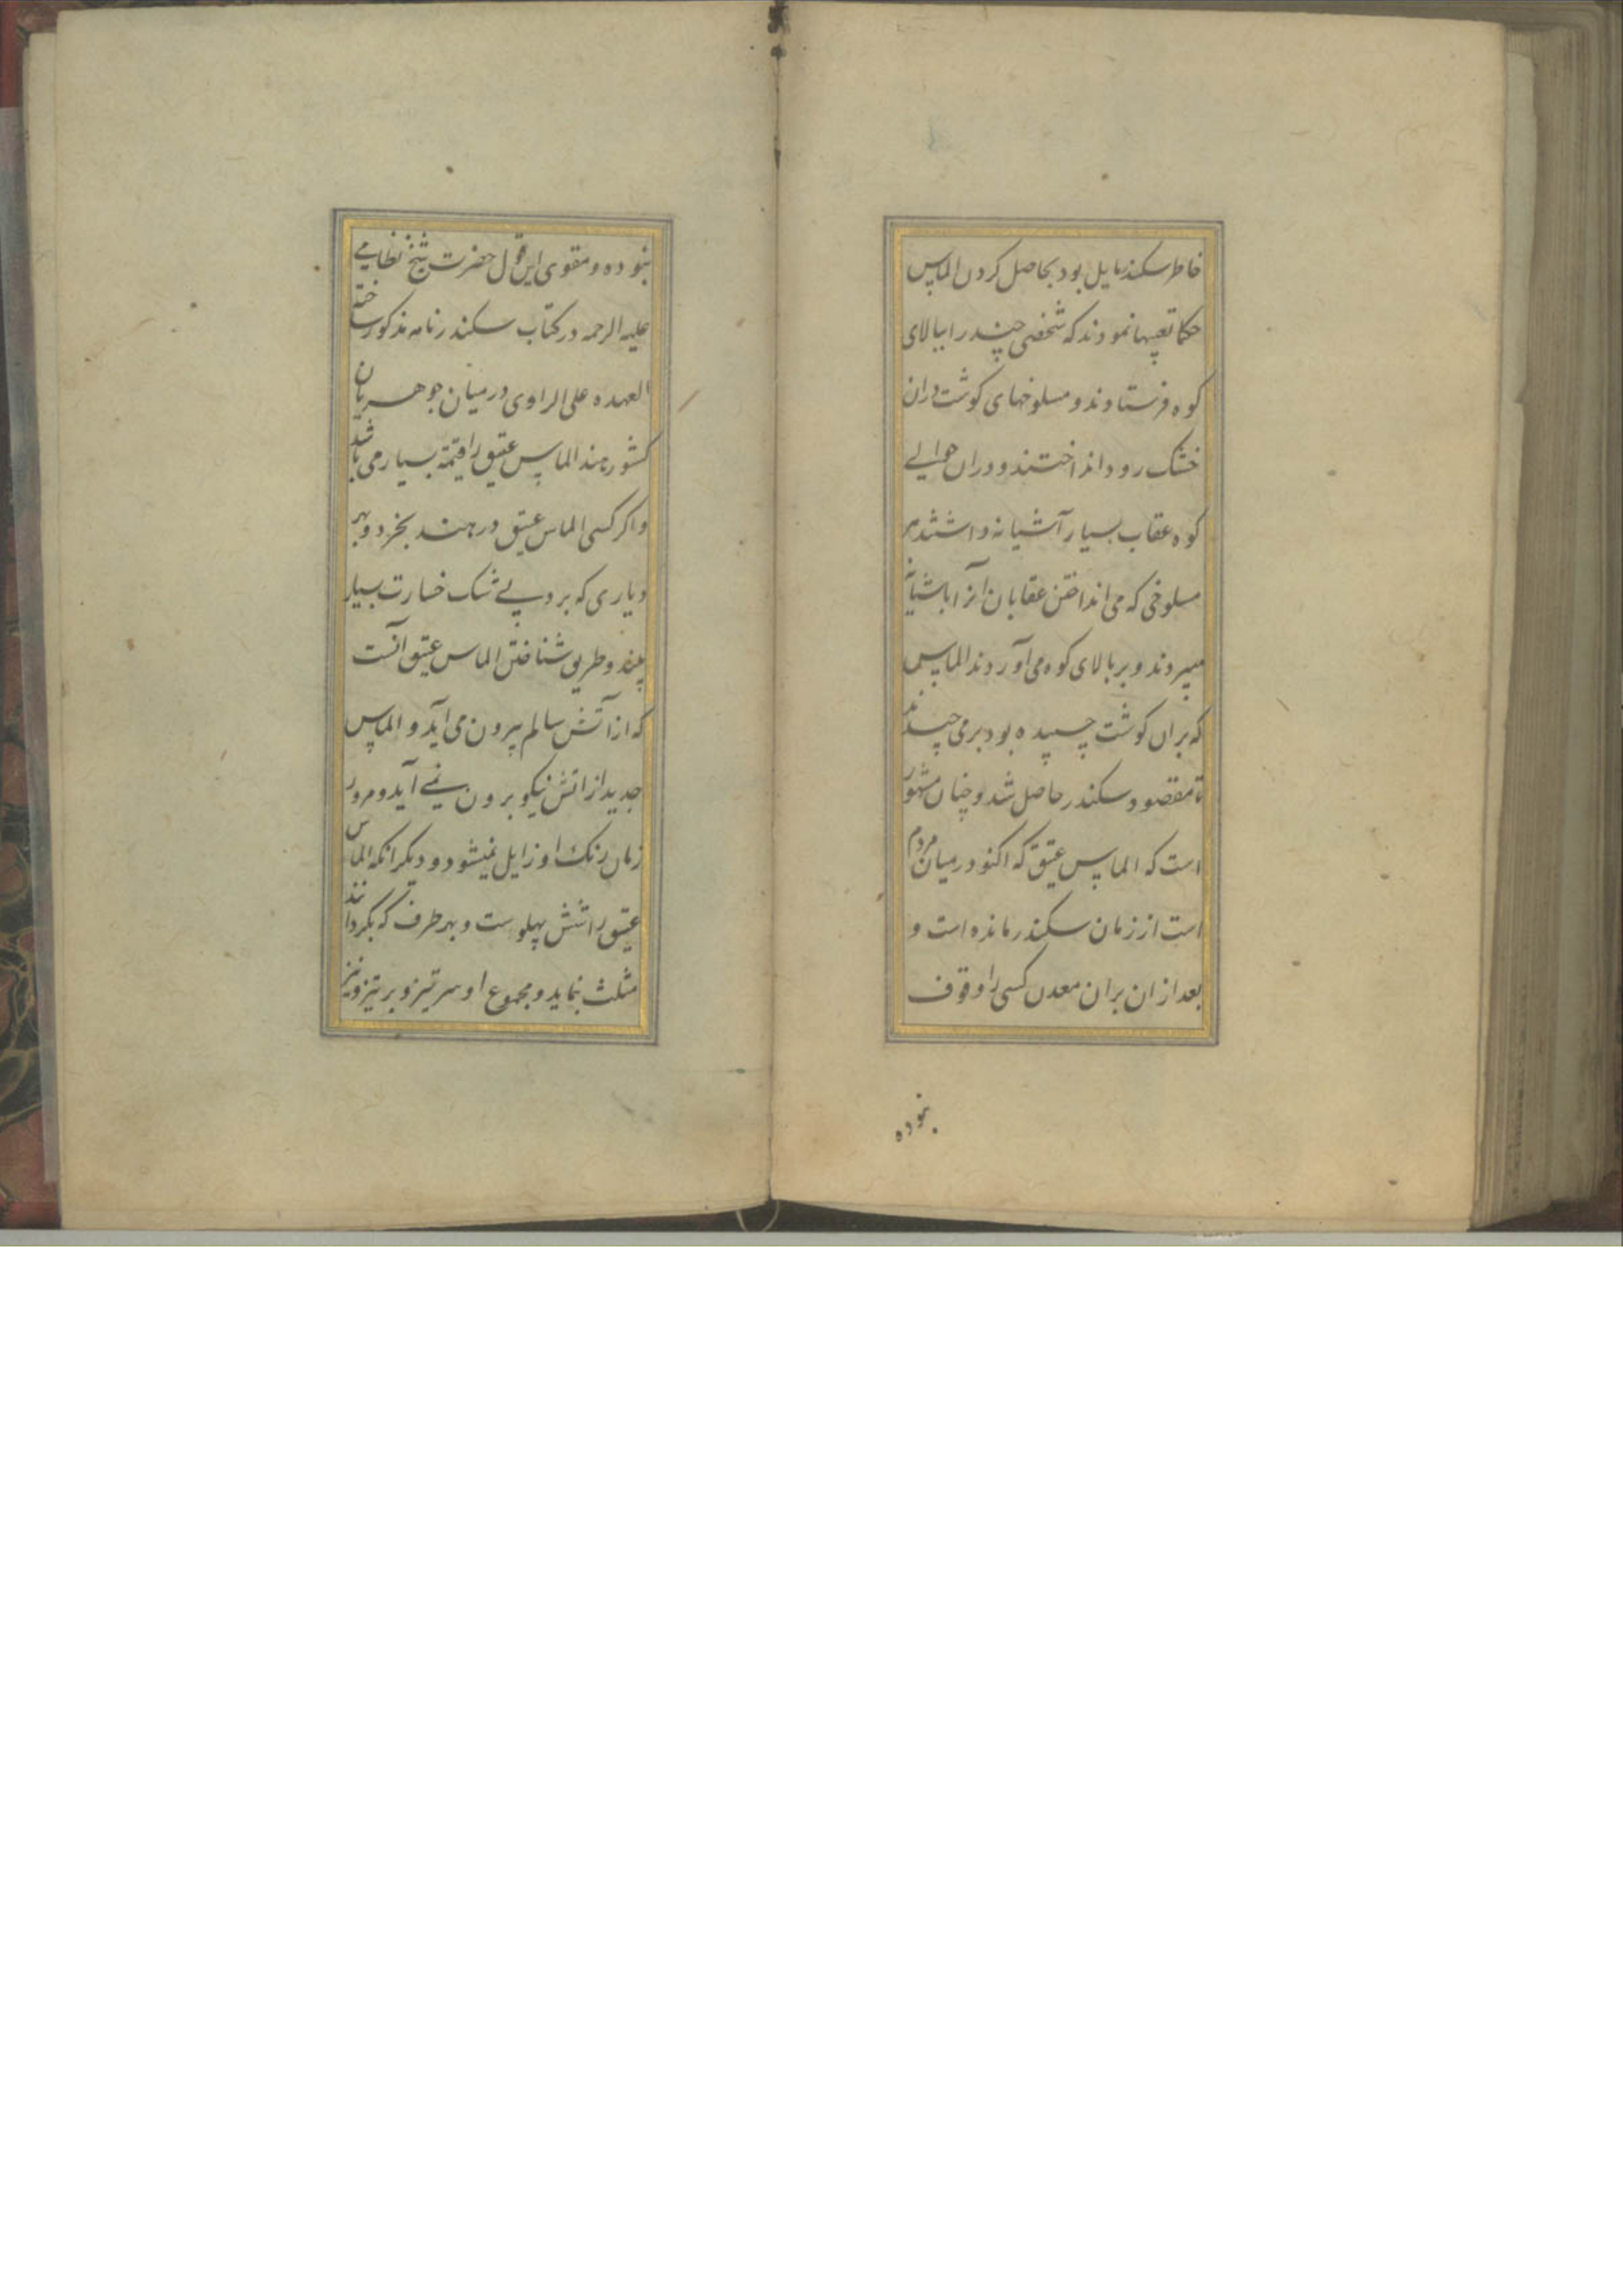 خاطر سکندر مایل بود بحاصل کردن الماس
حکما تعبیها نمودند که شخصی چند را ببالای
کوه فرستادند و مسلوخهای کوشت دران
خشک رود انداختند و دران حوالی
کوه عقاب بسیار آشیانه داشتند هر
مسلوخی که می انداختن عقابان آنرا باشیانه
میبردند و بر بالای کوه می آوردند الماس
که بران کوشت چسپیده بود بر می چیدند
تا مقصود سکندر حاصل شد و چنان مشهور
است که الماس عتیق که اکنو در میان مردم
است از زمان سکندر مانده است و
بعد از ان بران معدن کسی را وقوف
نبوده
نبوده و مقوی این قول حضرت شیخ نظامی
علیه الرحمه در کتاب سکندر نامه مذکور ساخته
العهده علی الراوی در میان جوهریان
کشور هند الماس عتیق را قیمة بسیار می باشد
و اکر کسی الماس عتیق در هند بخرد و بهر
دیاری که برد بی شک خسارت بسیار
بیند و طریق شناختن الماس عتیق آنست
که از آتش سالم بیرون می آید و الماس
جدید از اتش نیکو برون نمی آید و مرور
زمان رنک او زایل نمیشود و دیکر انکه الماس
عتیق را شش پهلوست و بهر طرف که بکردانند
مثلث نماید و مجموع او سر تیز و بر تیز و نیز